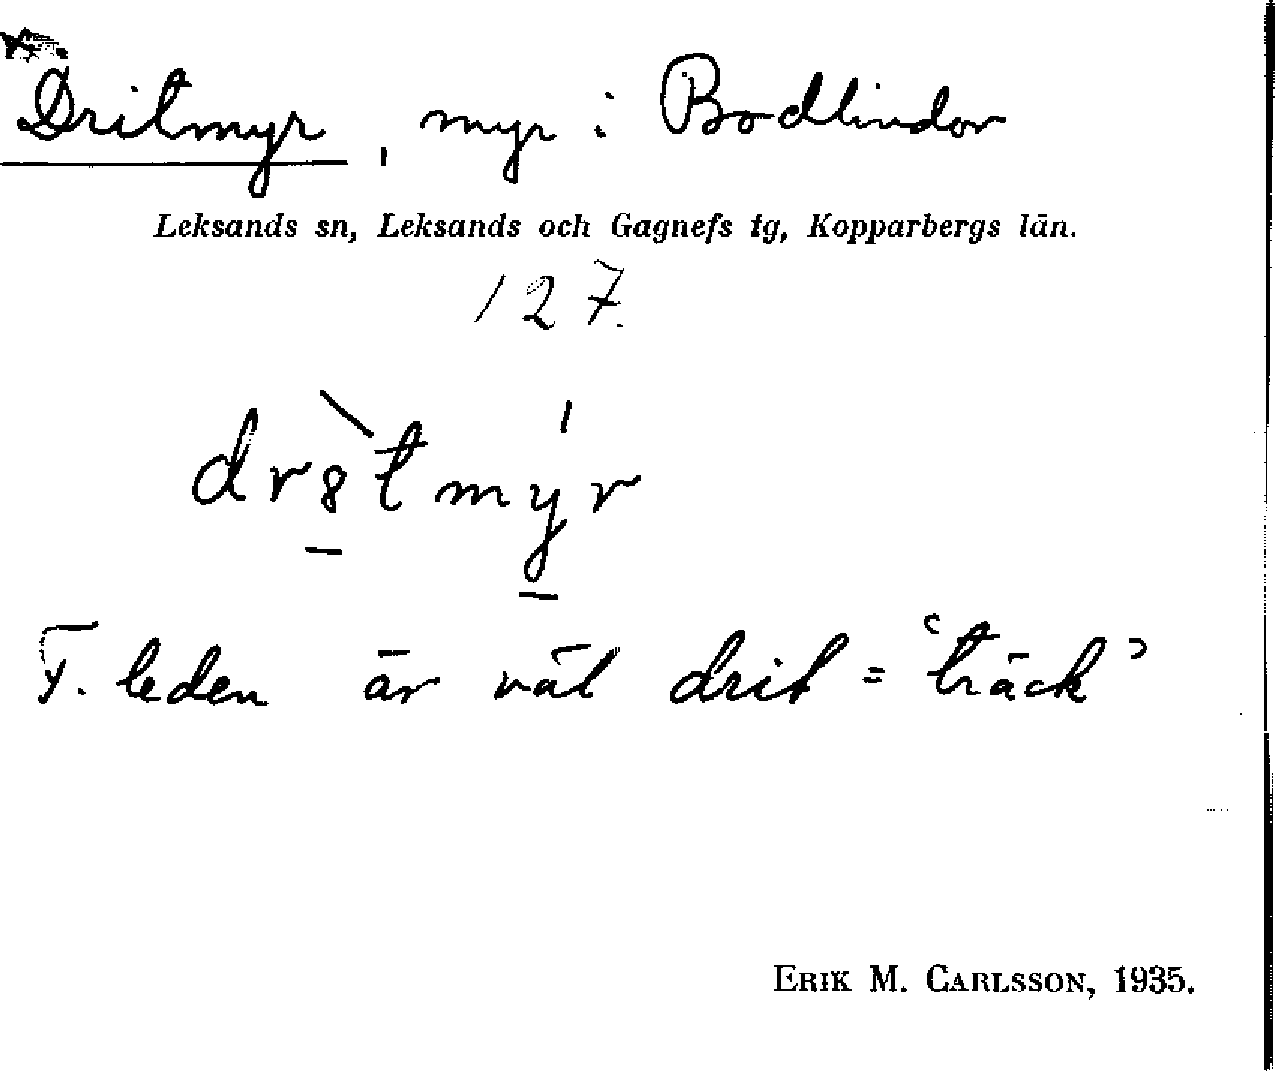 Dritmyr, myr i Bodlindor
Leksands sn, Leksands och Gagnefs tg, Kopparbergs län.
127.
dr8tmýr
F. leden är väl drit = ‘träck’
ERIK M. CARLSSON, 1935.